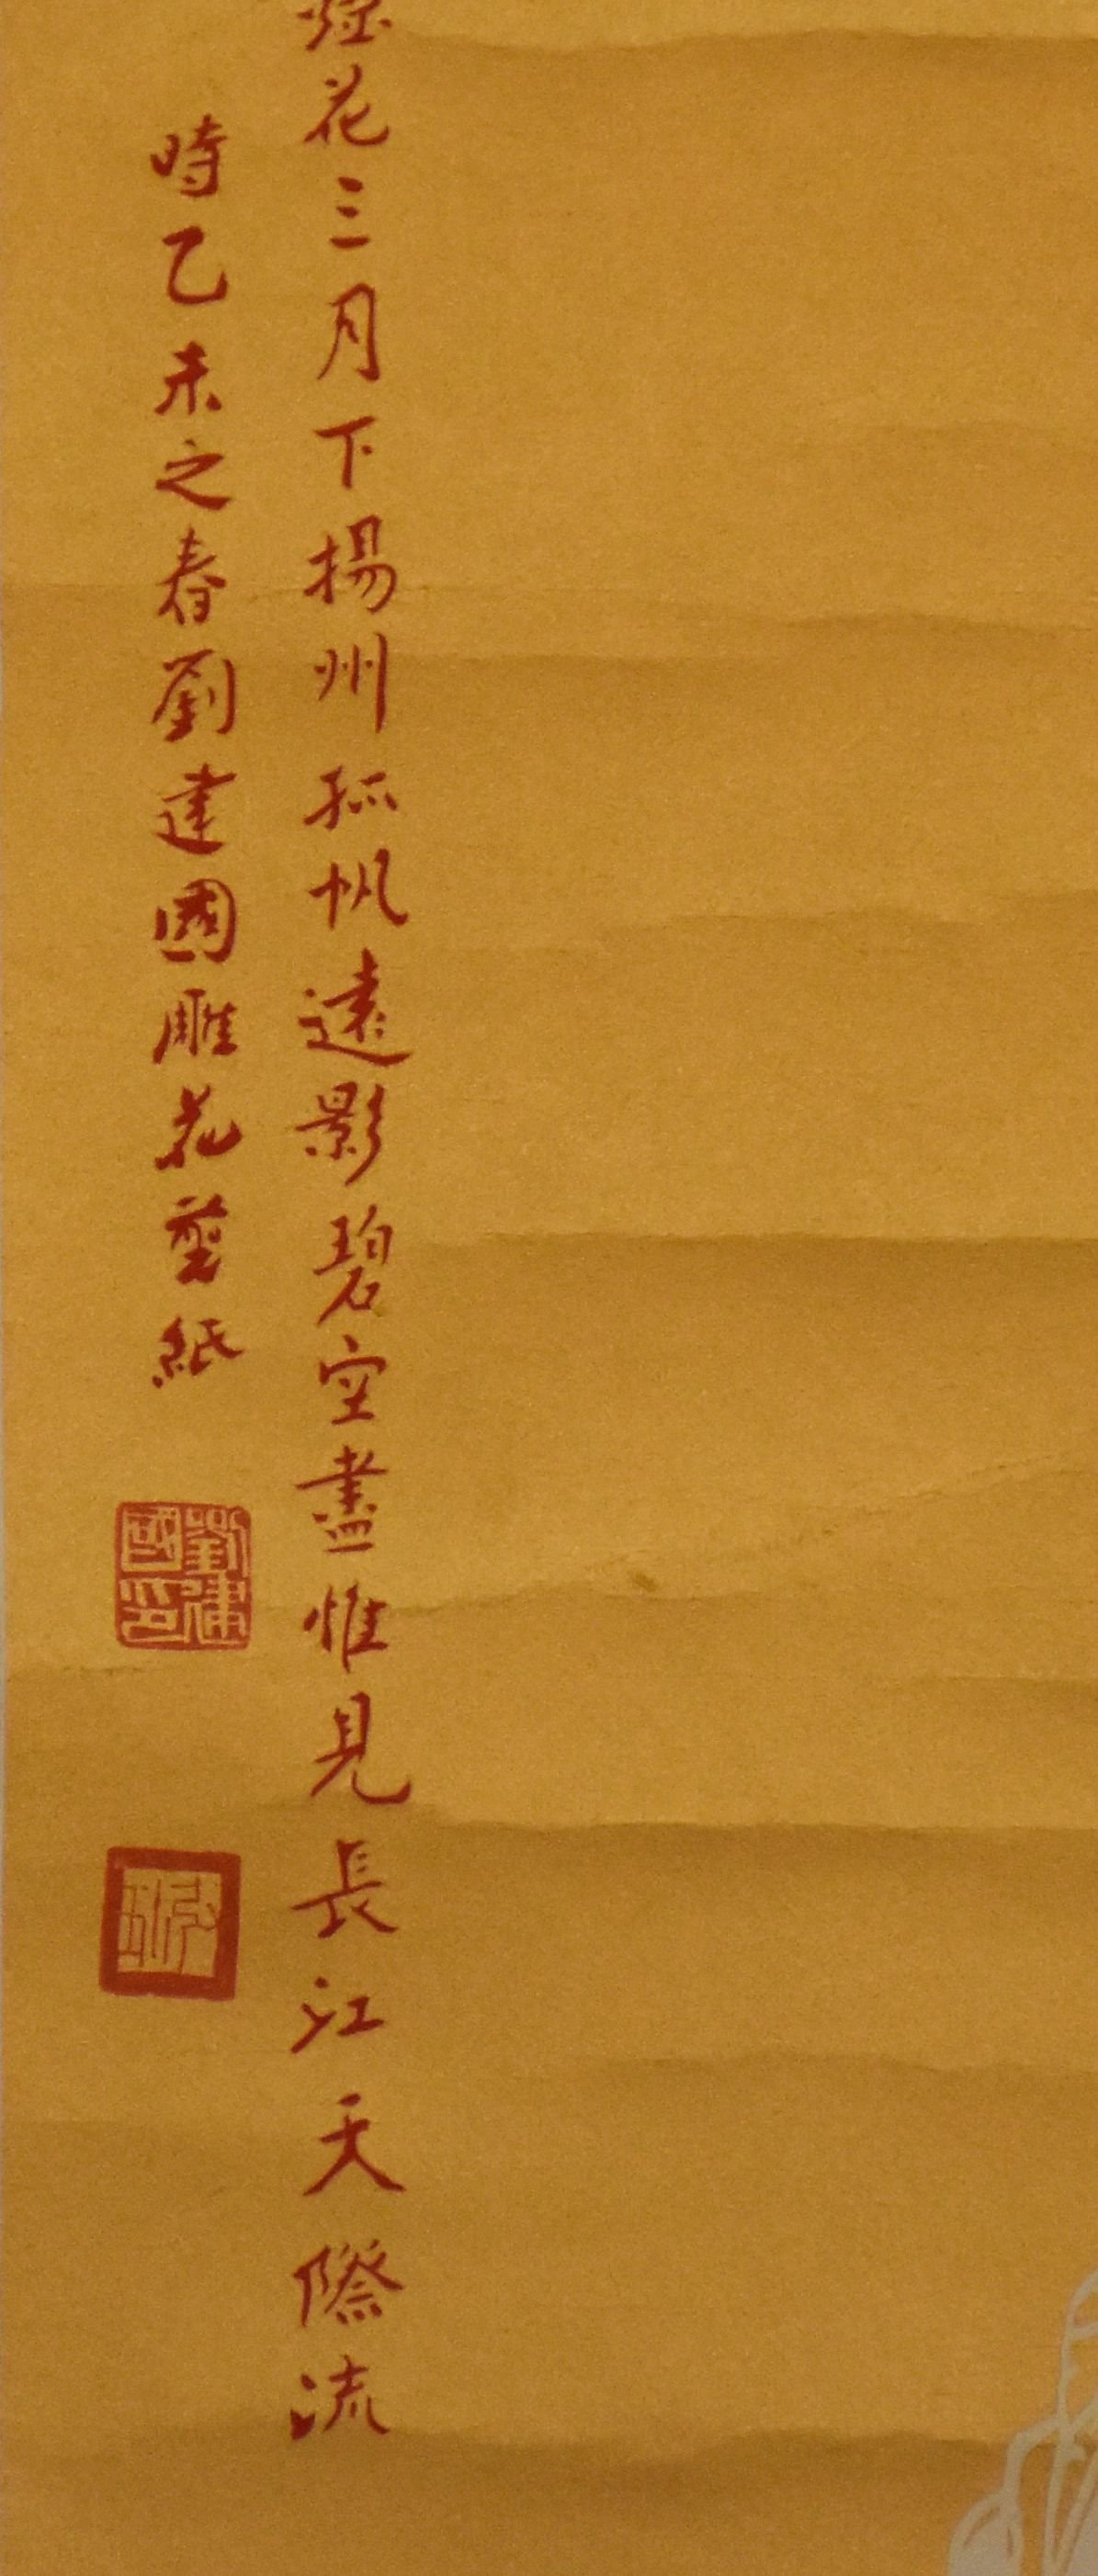 煙花三月下揚州孤帆遠影碧空盡惟見長江天際流
時乙未之春劉建國雕花剪紙
劉建國印